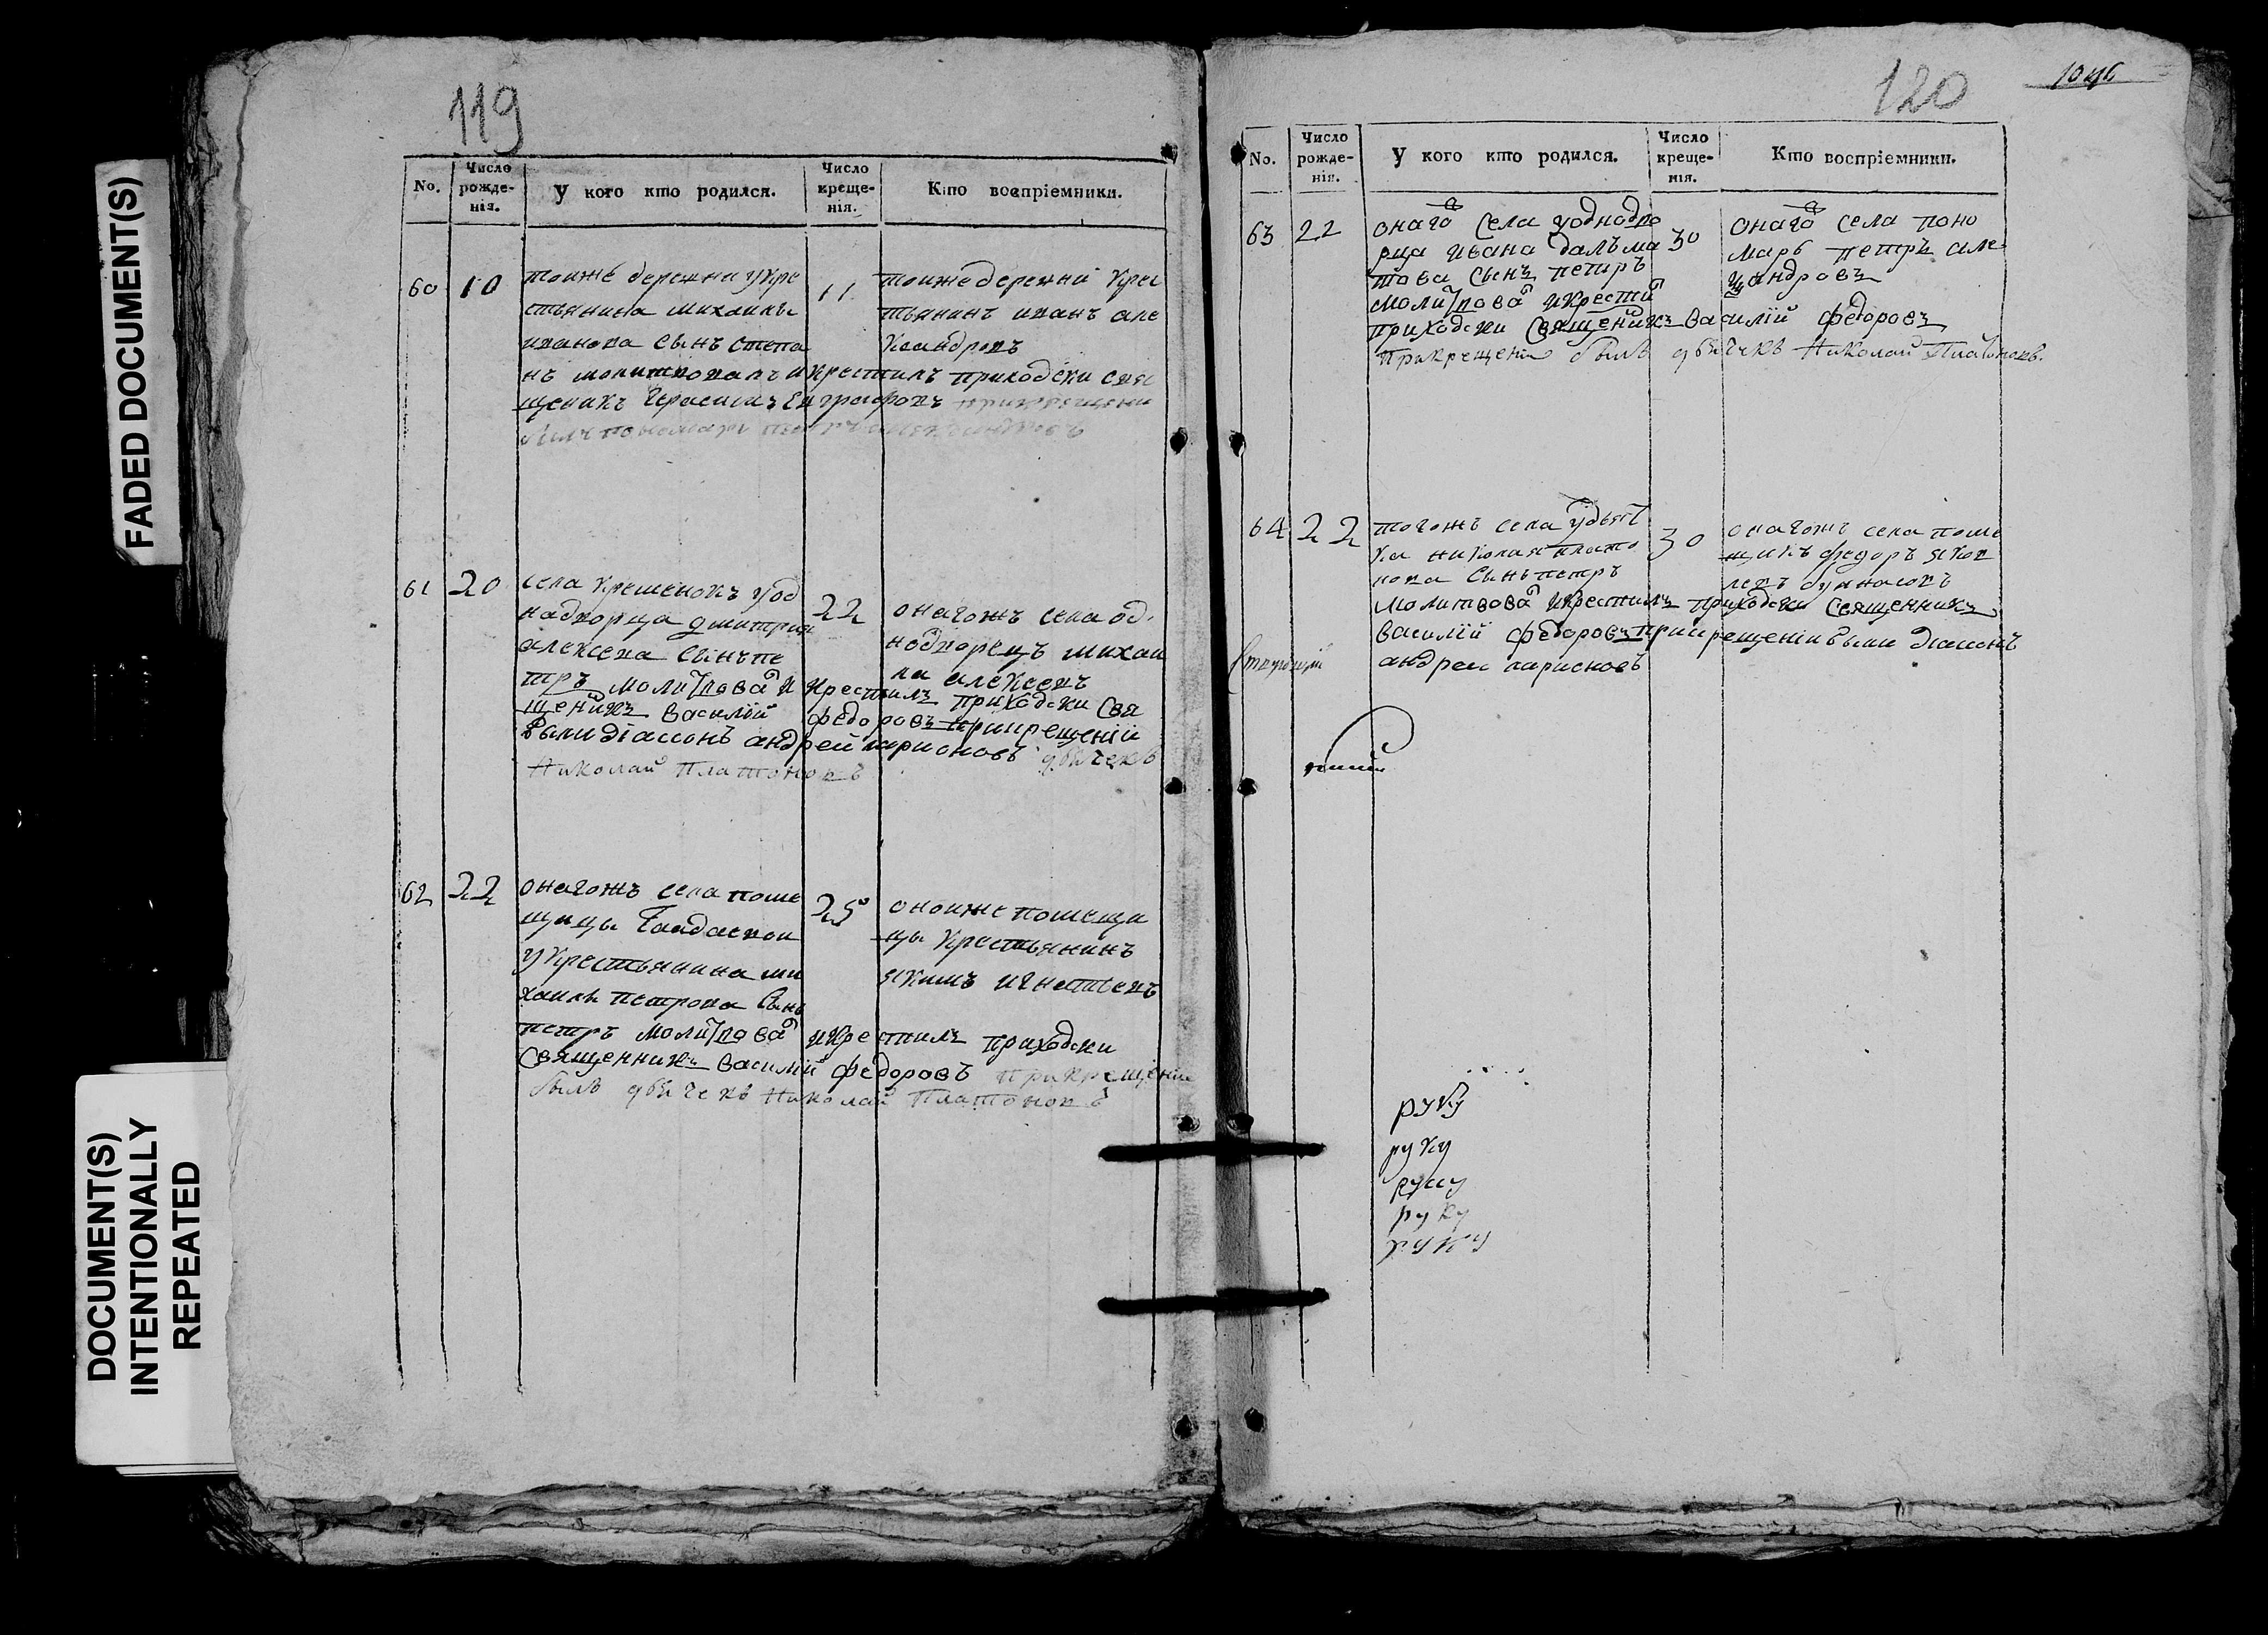 FADED DOCUMENT(S)
DOCUMENT(S)
INTENTIONALLY
REPEATED
119
No.
Число рожде-нія.
У кого кто родился.
Число креще-нія.
Кто воспріемники.
60
10
тоиже деревни укре
стьянина михаилы
иванова сынъ степа
нъ молитвовалъ и крестилъ приходски свя
щеникъ Герасимъ Евграфовъ прикрещени
былъ пономарь петръ александровъ
11
тоиже деревни крес
тьянинъ иванъ але
ксандровъ
61
20
села крешеновъ уод
надворца дмитрия
алексева сынъ пе
тръ молитвовал и крестилъ приходски свя
щеникъ василій федоровъ прикрещеніи
были діаконъ андрей ларионовъ дьячекъ
Николай Платоновъ
22
онагожъ села од
нодворецъ михаи
ла алексеевъ
62
22
онагожъ села поме
щицы
укрестьянина ми
хаилы петрова сынъ
петръ молитвовал и крестилъ приходски
священникъ василій федоровъ прикрещеніи
былъ дьячекъ Николай Платоновъ
25
оноиже помещи
цы крестьянинъ
якимъ игнатьевъ
120
No.
Число рожде-нія.
У кого кто родился.
Число креще-нія.
Кто воспріемники.
63
22
онаго села уоднодво
рца ивана далъма
това сынъ петръ
молитвовал и крестил
приходски священикъ василій федоровъ
прикрещеніи былъ дьячекъ Николай Платоновъ.
30
онаго села поно
марь петръ але
ксандровъ
64
22
тогожъ села удьяч
ка николая плато
нова сынъ петръ
молитвовал и крестилъ приходски священникъ
василій федоровъ прикрещеніи были діаконъ
андреи ларионовъ
30
онагожъ села поме
щикъ федоръ яков
левъ
руку
руку
руку
руку
руку